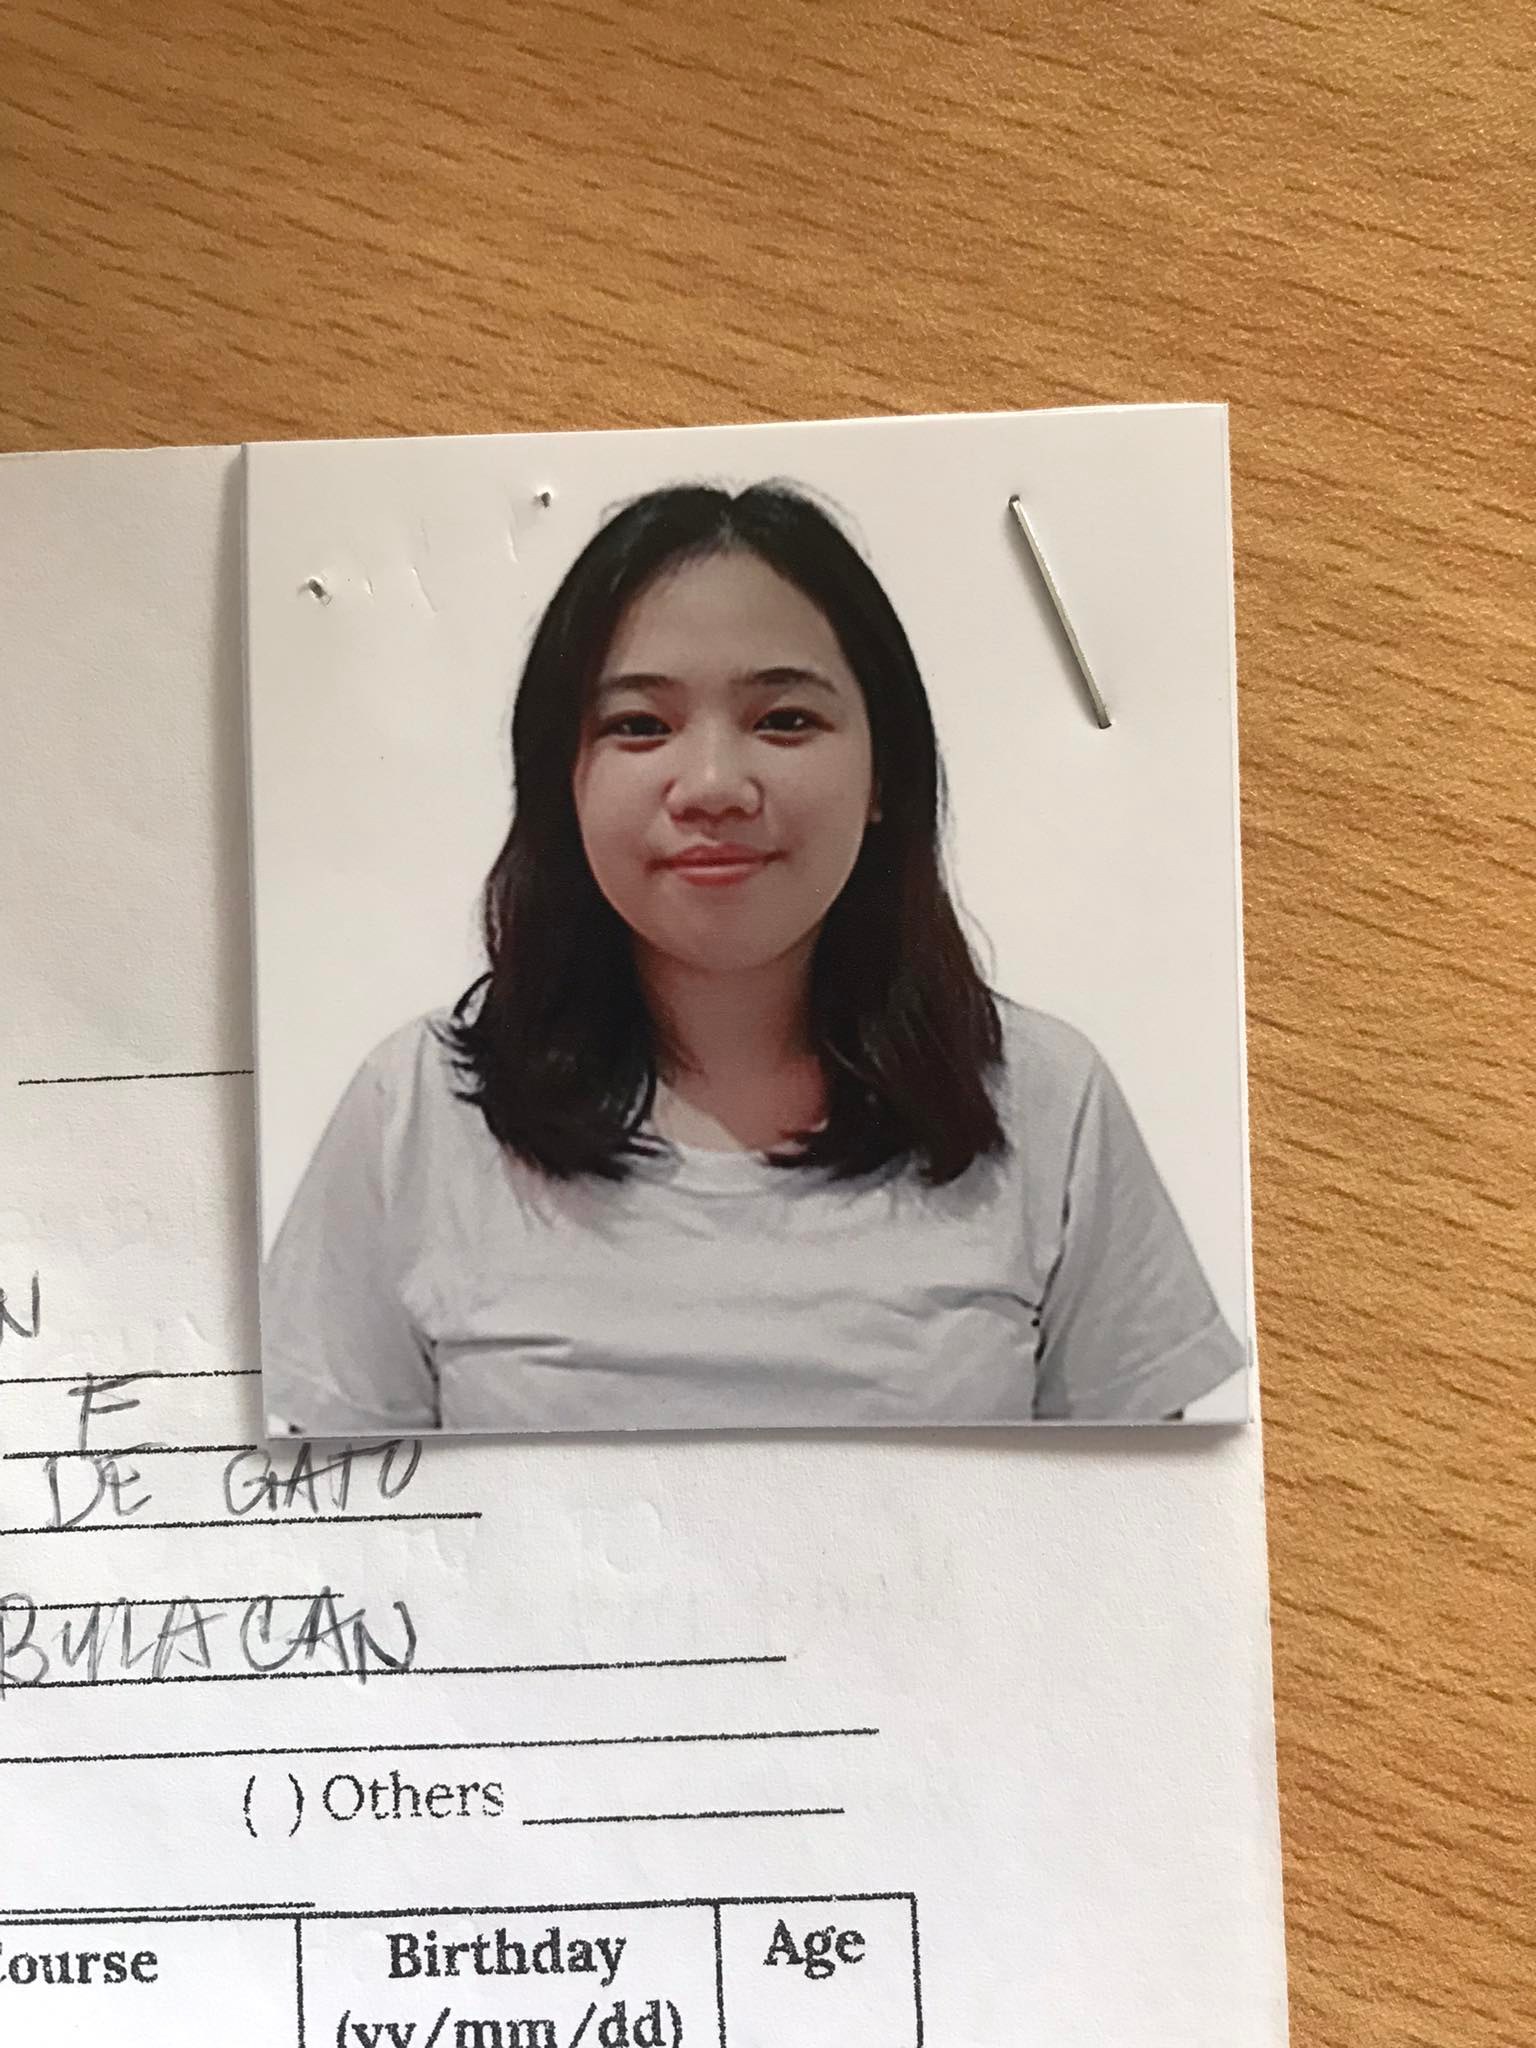 N
F
DE GATO
BULACAN
( ) Others
Course Birthday Age
(yy/mm/dd)